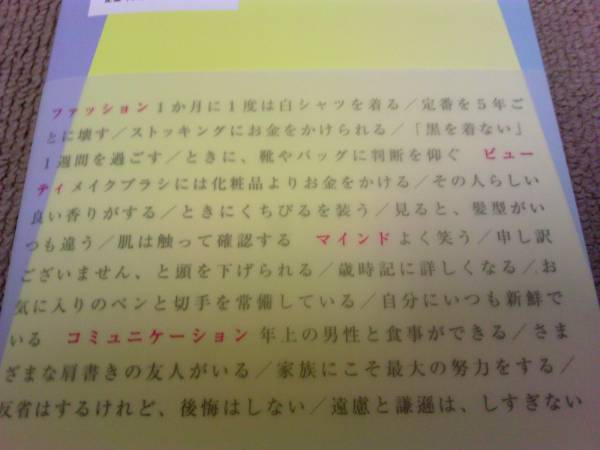 ファッション 1か月に1度は白シャツを着る／定番を5年ご
とに壊す／ストッキングにお金をかけられる／「黒を着ない」
1週間を過ごす／ときに、靴やバッグに判断を仰ぐ ビュー
ティ メイクブラシには化粧品よりお金をかける／その人らしい
良い香りがする／ときにくちびるを装う／見ると、髪型がい
つも違う／肌は触って確認する マインド よく笑う／申し訳
ございません、と頭を下げられる／歳時記に詳しくなる／お
気に入りのペンと切手を常備している／自分にいつも新鮮で
いる コミュニケーション 年上の男性と食事ができる／さま
ざまな肩書きの友人がいる／家族にこそ最大の努力をする／
反省はするけれど、後悔はしない／遠慮と謙遜は、しすぎない